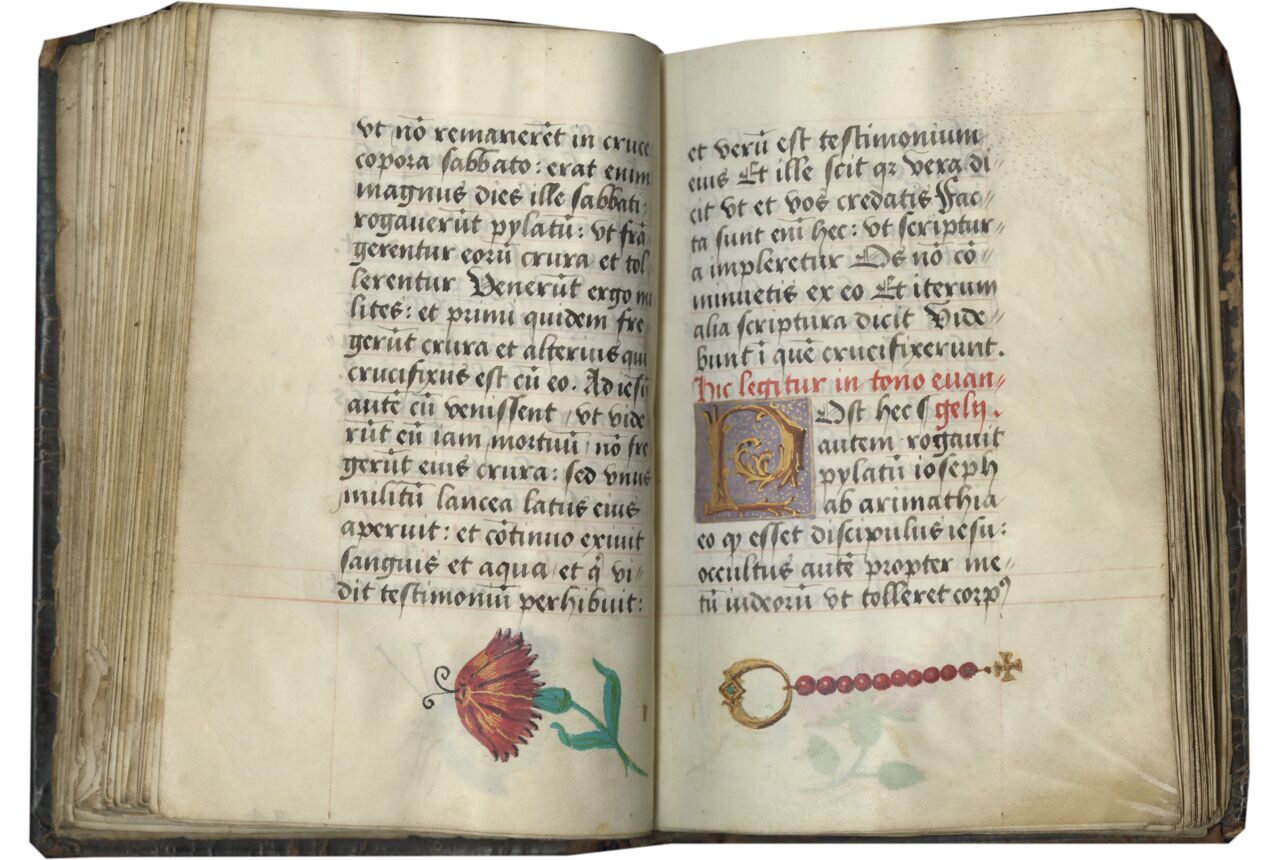 vt nō remanerēt in cruce
copora sabbato: erat enim
magnus dies ille sabbati:
rogauerūt pylatū: vt frā
gerentur eorū crura et tol
lerentur Venerūt ergo mi
lites: et primi quidem fre
gerūt crura et alterius qui
crucifixus est cū eo. Ad iesū
autē cū venissent vt vide
rūt eū iam mortuū nō fre
gerūt eius crura: sed vnus
militū lancea latus eius
aperuit: et cōtinuo exiuit
sanguis et aqua et q̄ vi⸗
dit testimoniū perhibuit:
et verū est testimonium
eius Et ille scit qꝛ vera di⸗
cit vt et vos credatis Fac⸗
ta sunt enī hec: vt scriptur⸗
a impleretur Os nō cō⸗
minuetis ex eo Et iterum
alia scriptura dicit Vide⸗
bunt ī quē crucifixerunt.
Hic legitur in tono euan⸗
Post hec gelij.
autem rogauit
pylatū ioseph
ab arimathia
eo ꝙ esset discipulus iesu:
occultus autē propter me⸗
tū iudeorū vt tolleret corpꝰ